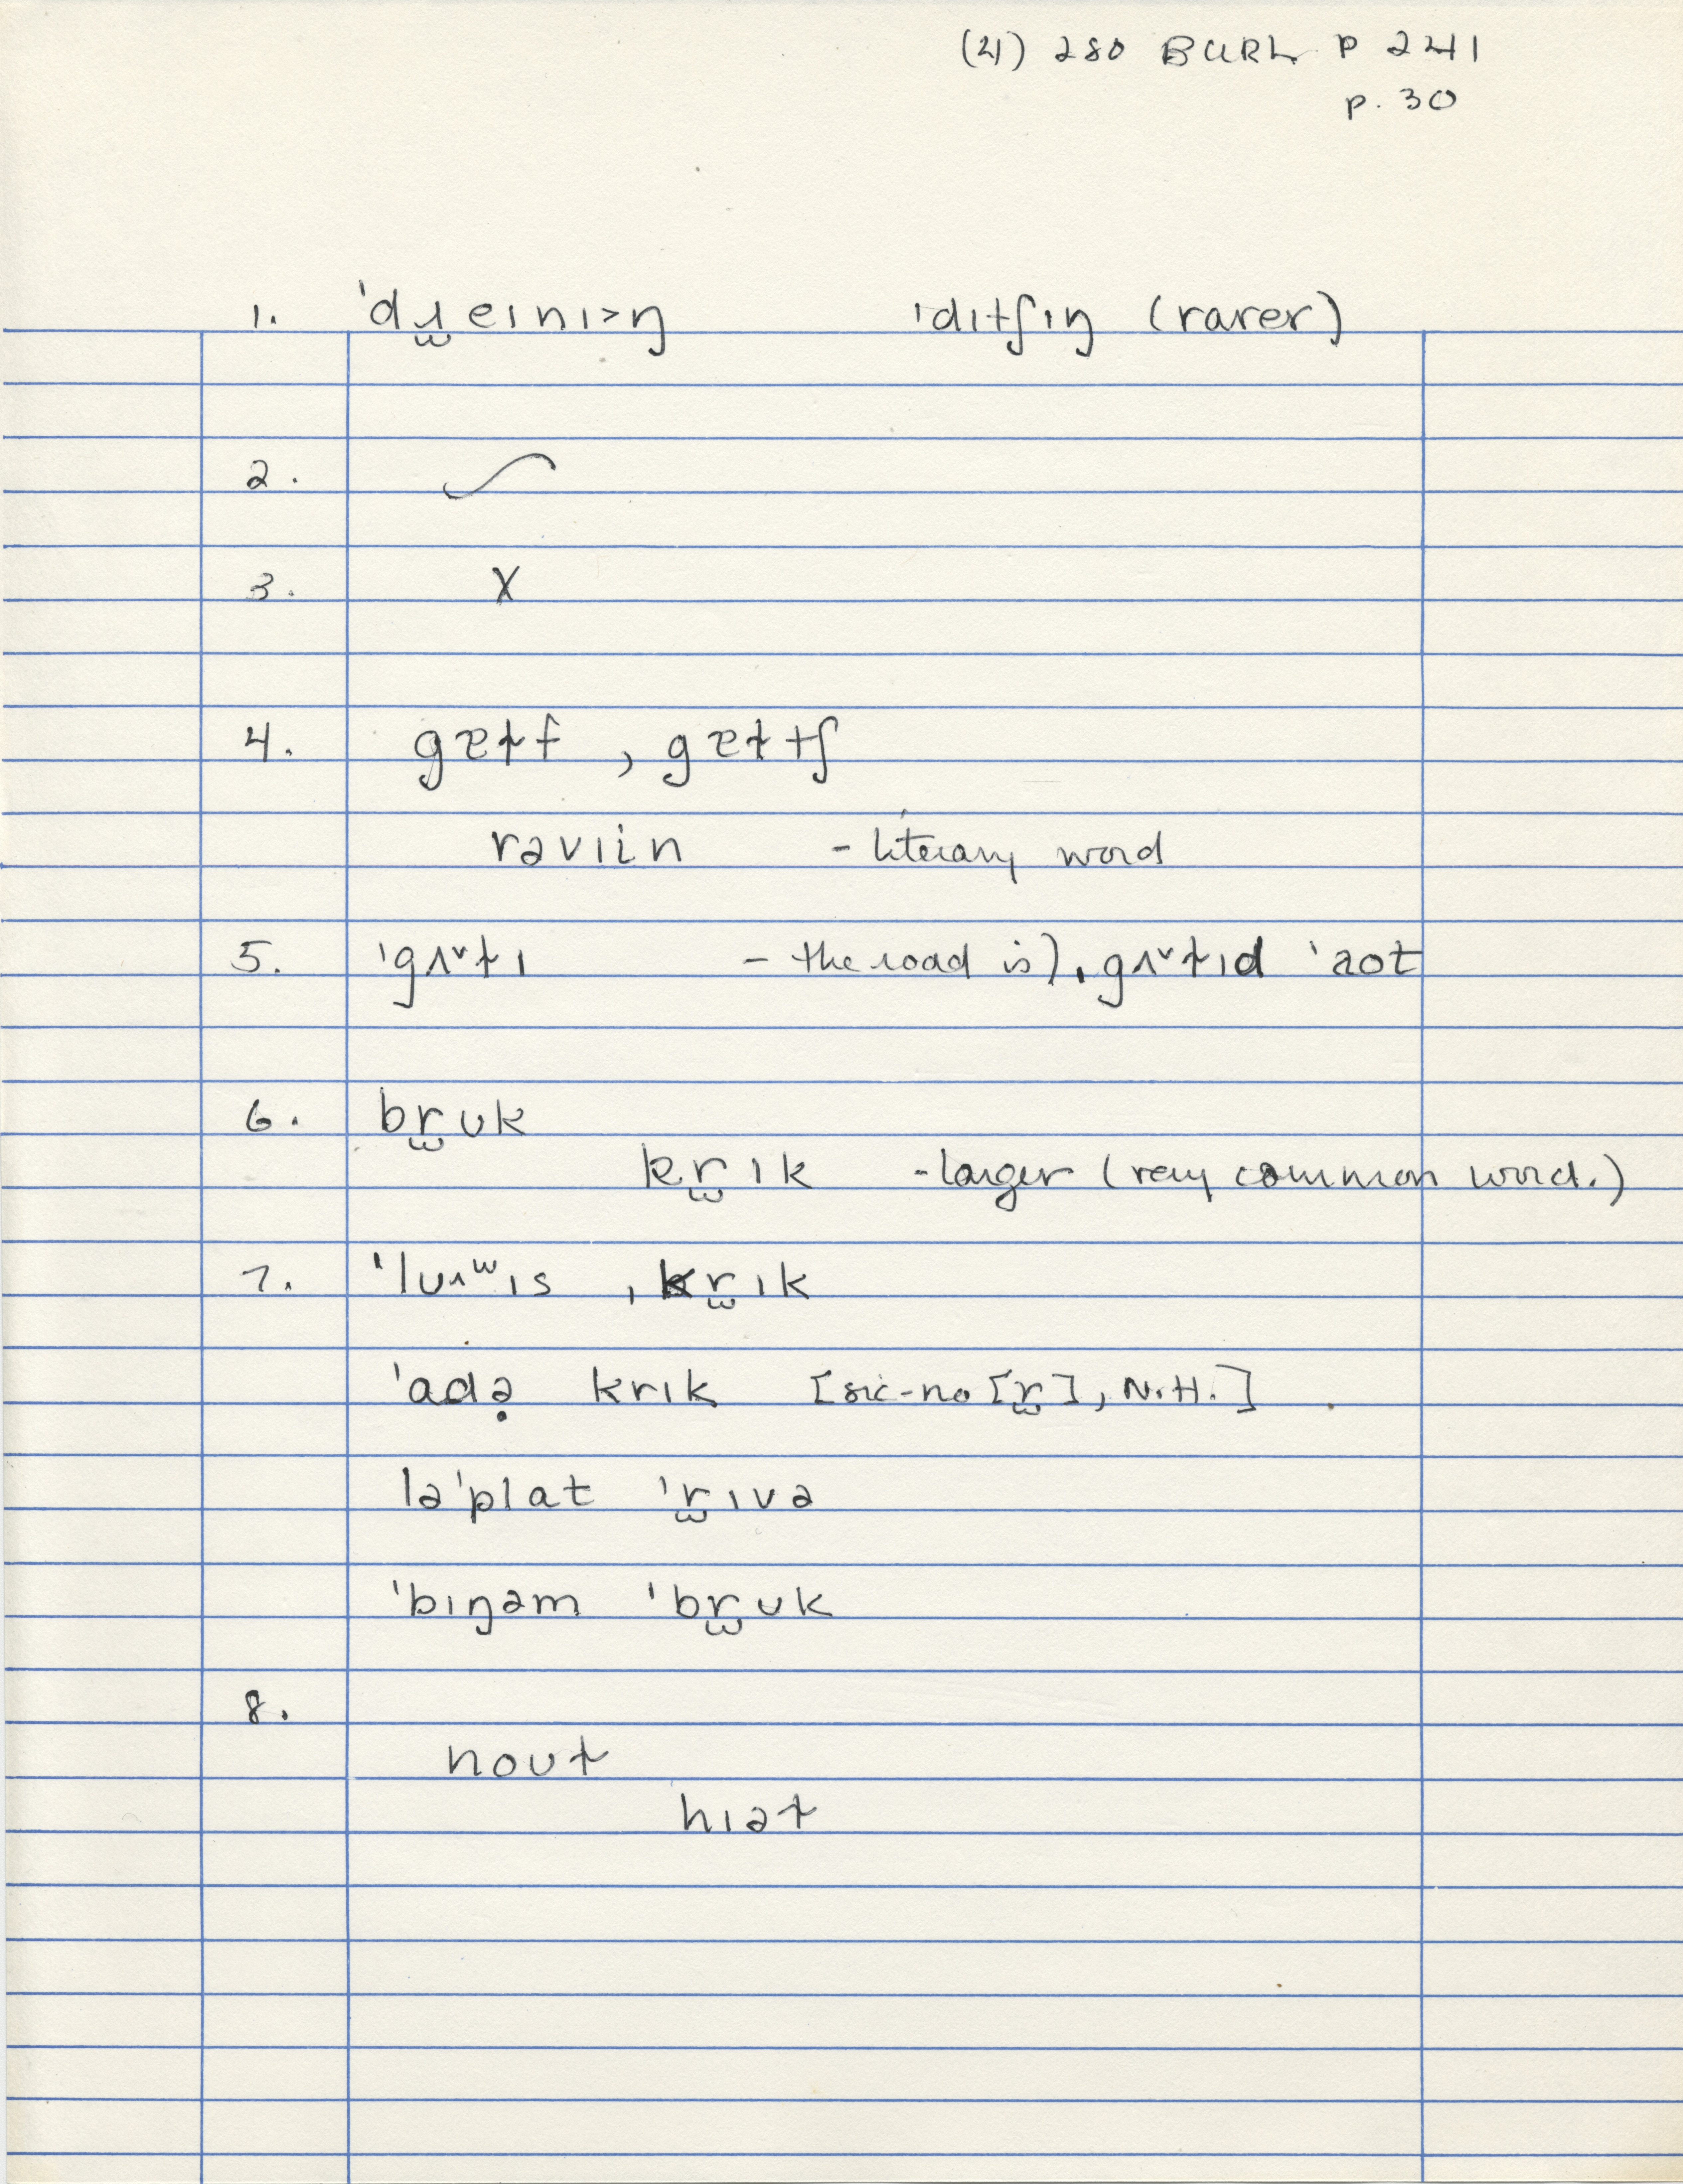 (4) 280 BURL P 241
p. 30
1. ˈdɹ̫eɪnɪ>ŋ ˈdɪtʃɪŋ (rarer)
2. ∽
3. X
4. gɐɫf , gɐɫtʃ
rəvɪin - literary word
5. ˈgʌˠɫɪ - the road is) ˌgʌˠɫɪd ˈaʊt
6. br̫ʊk
kr̫ɪk - larger (very common word.)
7. ˈluʌʷɪs ˌkr̫ɪk
ˈadə̣ krɪk [sic-no [r̫], N.H.]
ləˈplat ˈr̫ɪvə
ˈbɪŋəm ˈbr̫ʊk
8.
noʊɫ
hɪəɫ